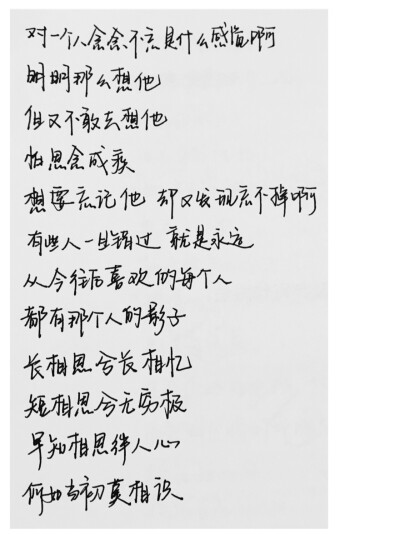 对一个人念念不忘是什么感觉啊
明明那么想他
但又不敢去想他
怕思念成疾
想要忘记他 却又发现忘不掉啊
有些人一旦错过 就是永远
从今往后喜欢的每个人
都有那个人的影子
长相思兮长相忆
短相思兮无穷极
早知相思绊人心
何如当初莫相识